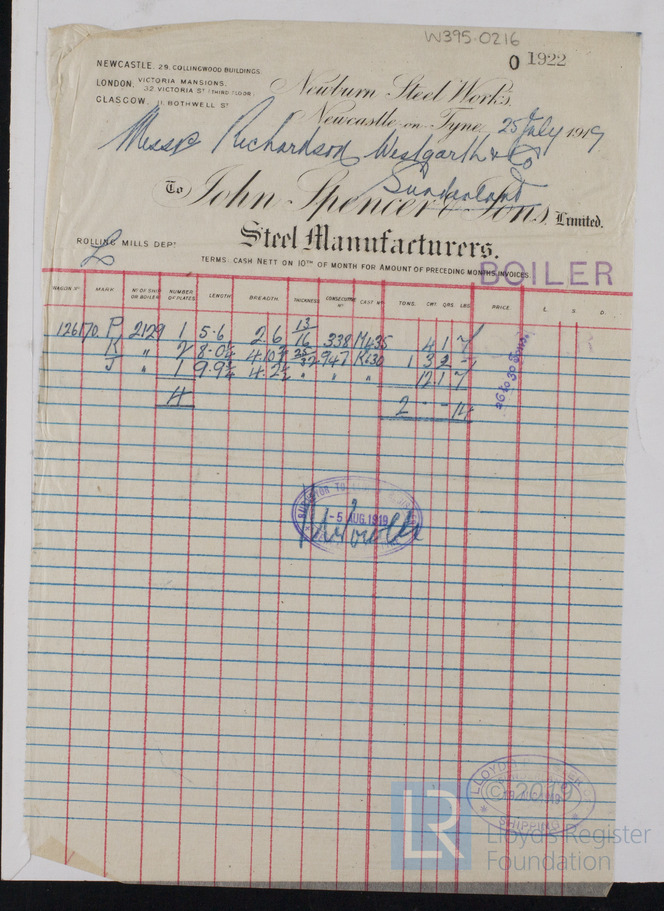 W395-0216
0 1922
NEWCASTLE. 29. COLLINGWOOD BUILDINGS.
LONDON. VICTORIA MANSIONS,
32, VICTORIA ST (THIRD FLOOR)
GLASGOW. 11, BOTHWELL ST
Newburn Steel Works,
Newcastle-on-Tyne, 25 July 1919
Messrs Richardson Westgarth & Co
Sunderland
To John Spencer & Sons, Limited.
Steel Manufacturers.
ROLLING MILLS DEPT
TERMS CASH NETT ON 10TH OF MONTH FOR AMOUNT OF PRECEDING MONTHS INVOICES
BOILER
WAGON NO MARK NO OF SHIP OR BOILER NUMBER OF PLATES LENGTH BREADTH THICKNESS CONSECUTIVE NO CAST NO TONS. CWT. QRS. LBS. PRICE. £. S. D.
126170 P 2129 1 5.6 2.6 13/16 338 M435 4 1 7
K " 2 8.0¼ 4.10¾ 25/32 947 K630 1 3 2
J " 1 9.9¼ 4.2½ " " " 12 1 7
4 2 - - 14
26 to 30 tons.
SURVEYOR TO
-5 AUG. 1919
LLOYD'S REGISTER
SHIPPING
© 2019
LR
Lloyd's Register
Foundation